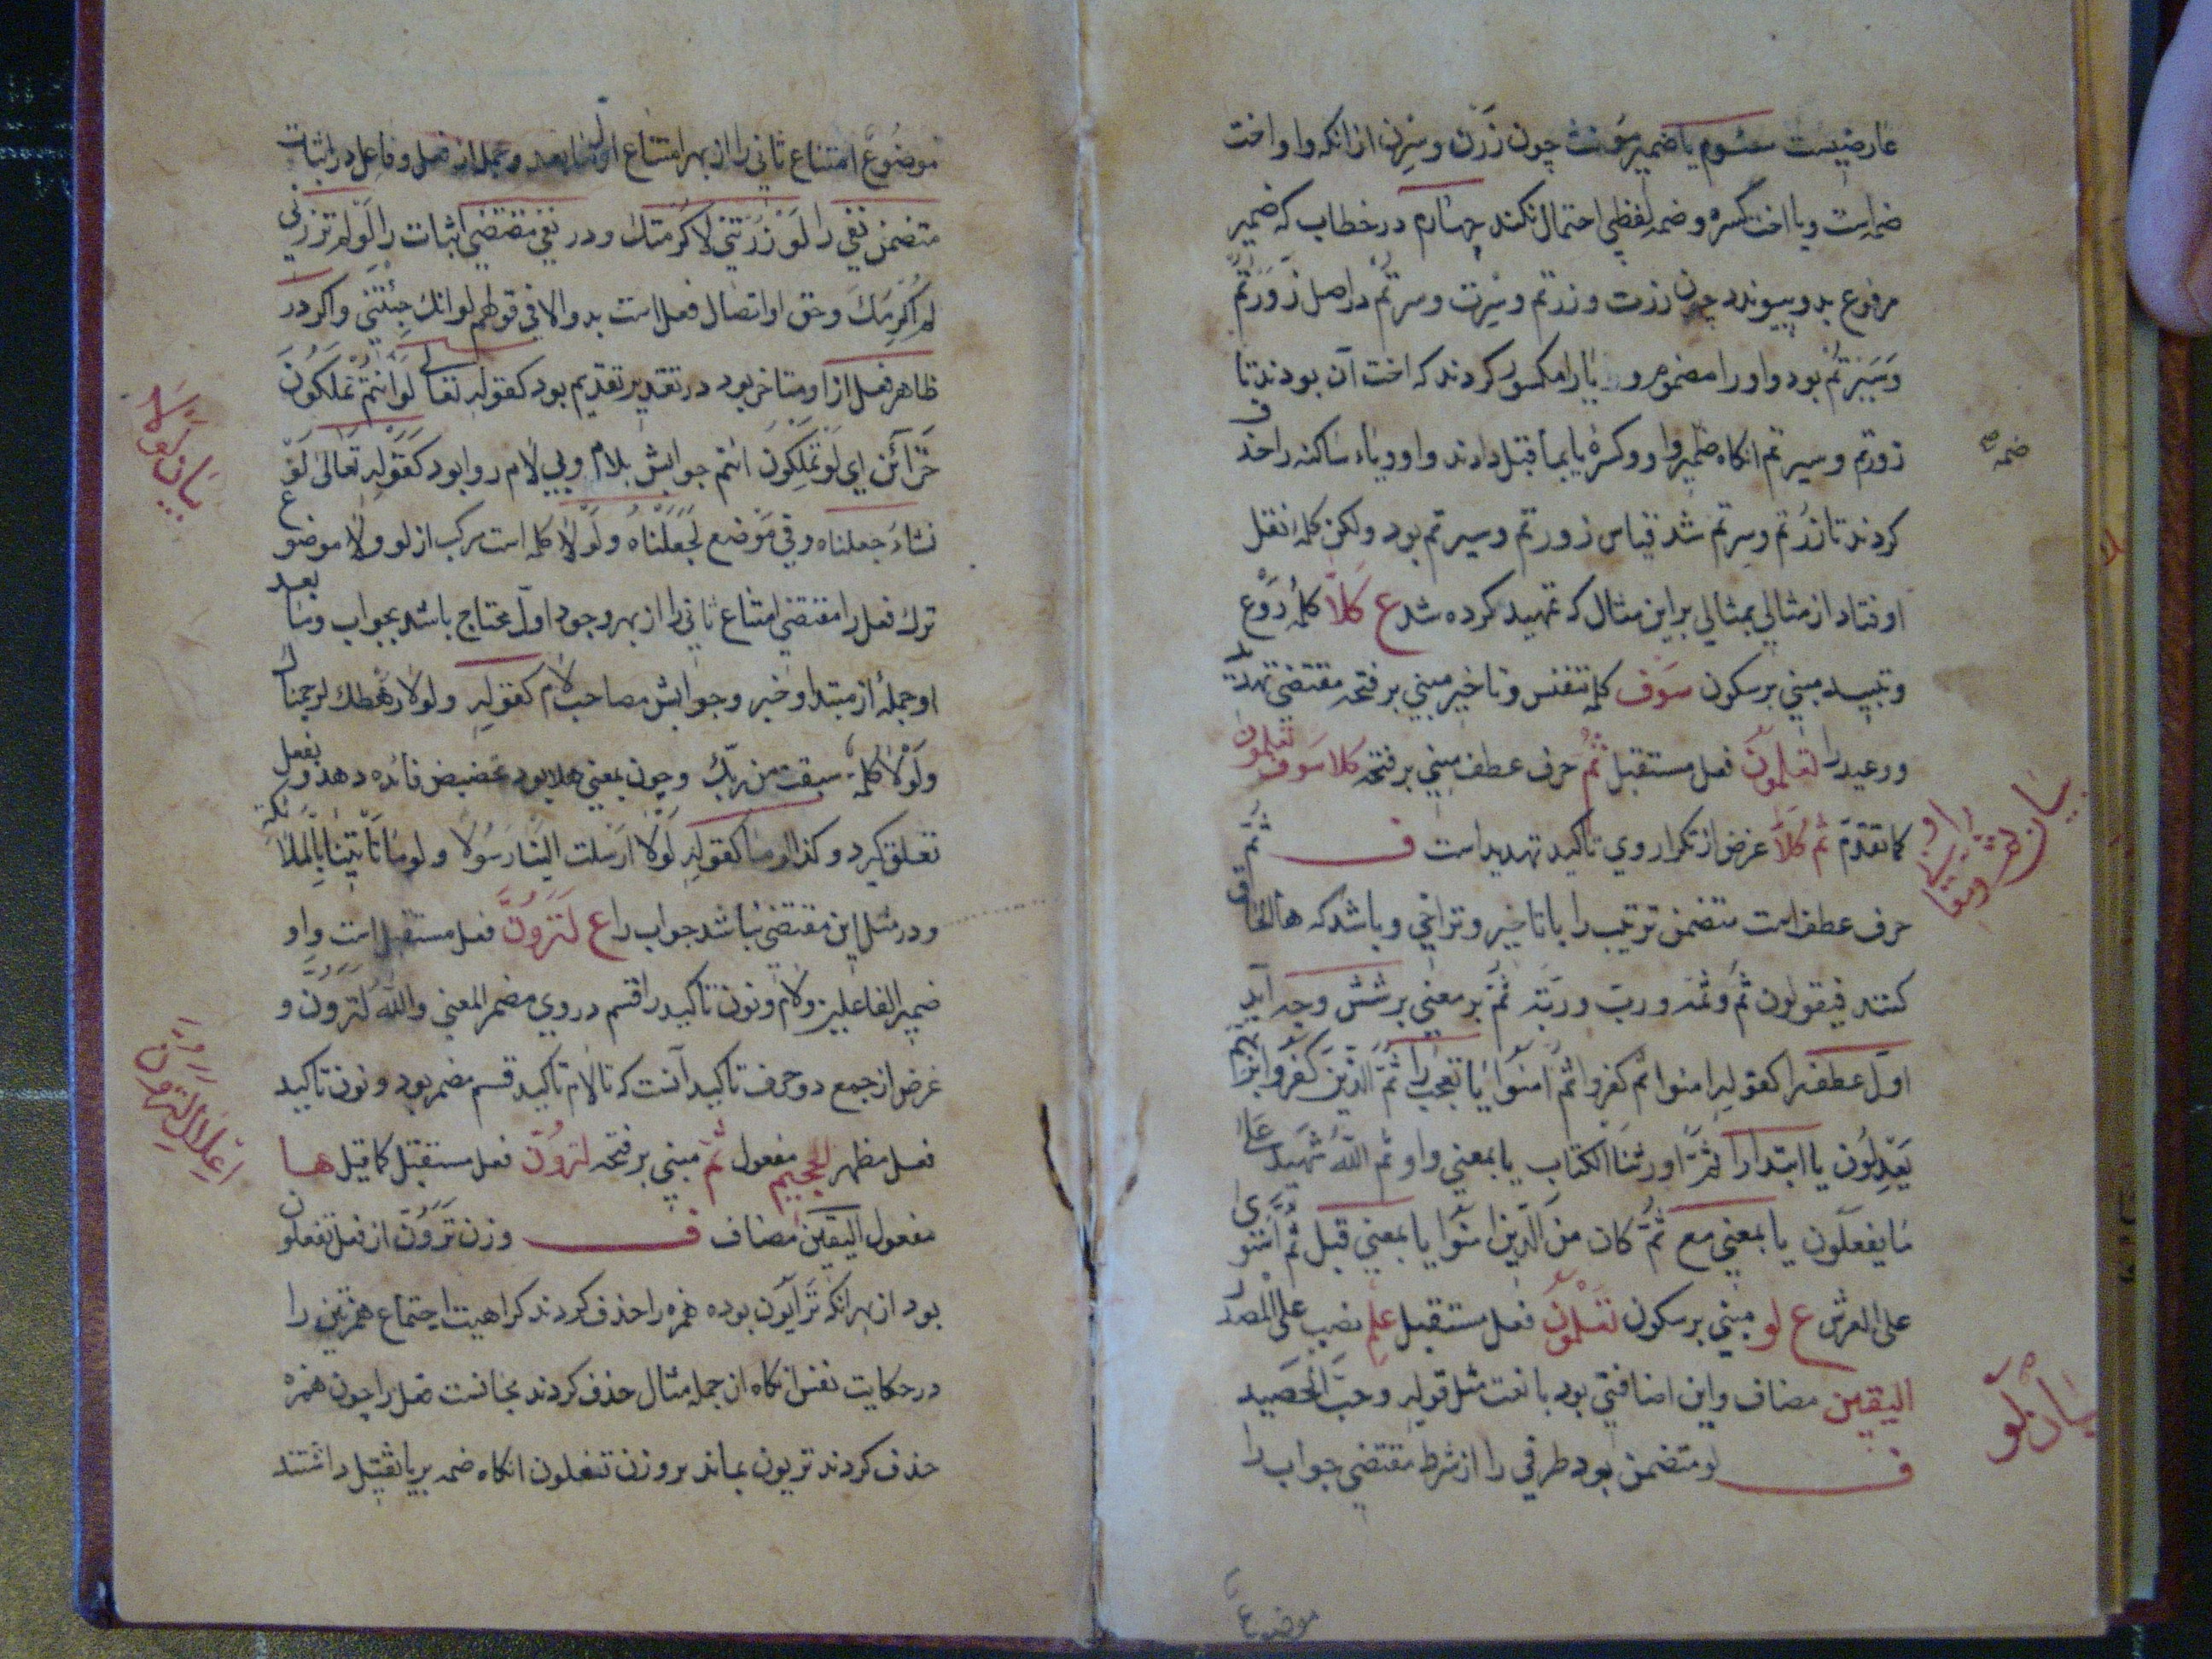 عارضیست سئوم یا ضمیر مؤنث چون زرن و سرن ازانکه واو اخت
ضمه است و یا اخت کسره و ضمه لفظی احتمال نکند چهارم در خطاب که ضمیر
مرفوع بدو پیوندد چون زرت و زرتم و سرت و سرتم در اصل زَوَرْتُم
وَسَیَرْتُم بود واو را مضموم و یا را مکسور کردند که اخت آن بودند تا
زورتم و سیرتم انکاه ضمه واو و کسره یا بما قبل دادند واو و یاء ساکنه را حذف
ضمه صح
کردند تا زُرتم و سِرتم شد قیاس زورتم و سیرتم بود ولکن کلمه نقل
اوفتاد از مثالی بمثالی بر این مثال که تمهید کرده شد ع کَلَّا کلمهٔ رَدْع
و مبنی بر سکون سَوْفَ کلمه تنفس و تاخیر مبنی بر فتحه مقتضی تهدید
و وعید را تعلمون فعل مستقبل ثُمَّ حرف عطف مبنی بر فتحه کلا سوف تعلمون
کما تقدّم ثم کلّا غرض از تکرار وی تاکید تهدید است ف ثُمَّ
بیان ثم
حرف عطف است متضمن ترتیب را با تاخیر و تراخی و باشد که ها الحاق
کنند فیقولون ثُمَّ و ثُمَّه و ربّ و ربّه ثُمَّ بر معنی بر شش وجه آید
اوّل عطف را کقوله امنوا ثم کفروا ثُمَّ آمَنُوا یا تعجب را ثُمَّ الَّذِینَ کَفَرُوا بِرَبِّهِم
یَعْدِلُون یا ابتدا را ثُمَّ اورثنا الکتاب یا بمعنی واو ثم اللّٰه شهید علی
ما یفعلون یا بمعنی مع ثُمَّ کان من الّذین امنوا یا بمعنی قبل ثُمَّ استوی
علی العرش ع لو مبنی بر سکون تَعْلَمُونَ فعل مستقبل عِلْمَ نصب علی المصدر
الیقین مضاف و این اضافتی بود با نعت مثل قوله و حبّ الحصید
بیان لَوْ
ف لو متضمن بود طرفی را از شرط مقتضی جواب را
موضوع
موضوع امتناع ثانی را از بهر امتناع اول و جمله از فعل و فاعل در اثبات
متضمن نفی را لَوْ زُرْتَنِی لَاَکْرَمْتُكَ و در نفی مقتضی اثبات را لَوْ لم تزرنی
لم اُکْرِمْكَ و حق او اتصال فعل است بدو الا فی قولهم لو انك جِئْتَنِی و اکر در
ظاهر فعل ازاو متاخر بود در تقدیر تقدیم بود کقوله تعالی لَوْ اَنْتُمْ تَمْلِکُونَ
بیان لولا
خَزَآئِنَ ای لَوْ تَمْلِکُونَ انتم جوابش بلام و بی لام روا بود کَقَوْلِه تَعَالی لَوْ
نشاءُ جعلناه و فی مَوْضع لَجَعَلْنَاهُ وَلَوْلَا کلمه است مرکب از لو و لا موضوع
ترك فعل را مقتضی امتناع ثانی را از بهر وجود اوّل محتاج باشد بجواب و ما بعد
او جملهٔ از مبتدا و خبر و جوابش مصاحب لام کقوله و لولا رهطك لرجمناك
وَلَوْلَا کلمة سبقت من ربّك و چون بمعنی هلا بود تحضیض فائده دهد و بفعل
تعلق کیرد و کذا لو ما کقوله لَوْلَا ارسلت الینا رسولا و لو ما تاتینا بالملائکة
و در مثل این مقتضی نباشد جواب را ع لَتَرَوُنَّ فعل مستقبل است واو
ضمیر الفاعلین و لام و نون تاکید را قسم در وی مضمر المعنی والله لَتَرَوُنَّ و
غرض از جمع دو حرف تاکید آنست که تا لام تاکید قسم مضمر بود و نون تاکید
اعلال لترون
فعل مظهر الجحیم مفعول ثُمَّ مبنی بر فتحه لترونّ فعل مستقبل کما قیل ها
مفعول الیقین مضاف ف وزن تَرَوُنَّ از فعل تفعلون
بود از بهر انکه تَرْاَیُون بوده همزه را حذف کردند کراهیت اجتماع همزتین را
در حکایت نفس انکاه از جمله مثال حذف کردند مجانست فعل را چون همزه
حذف کردند تریون بماند بر وزن تفلون انکاه ضمه بر یا ثقیل داشتند